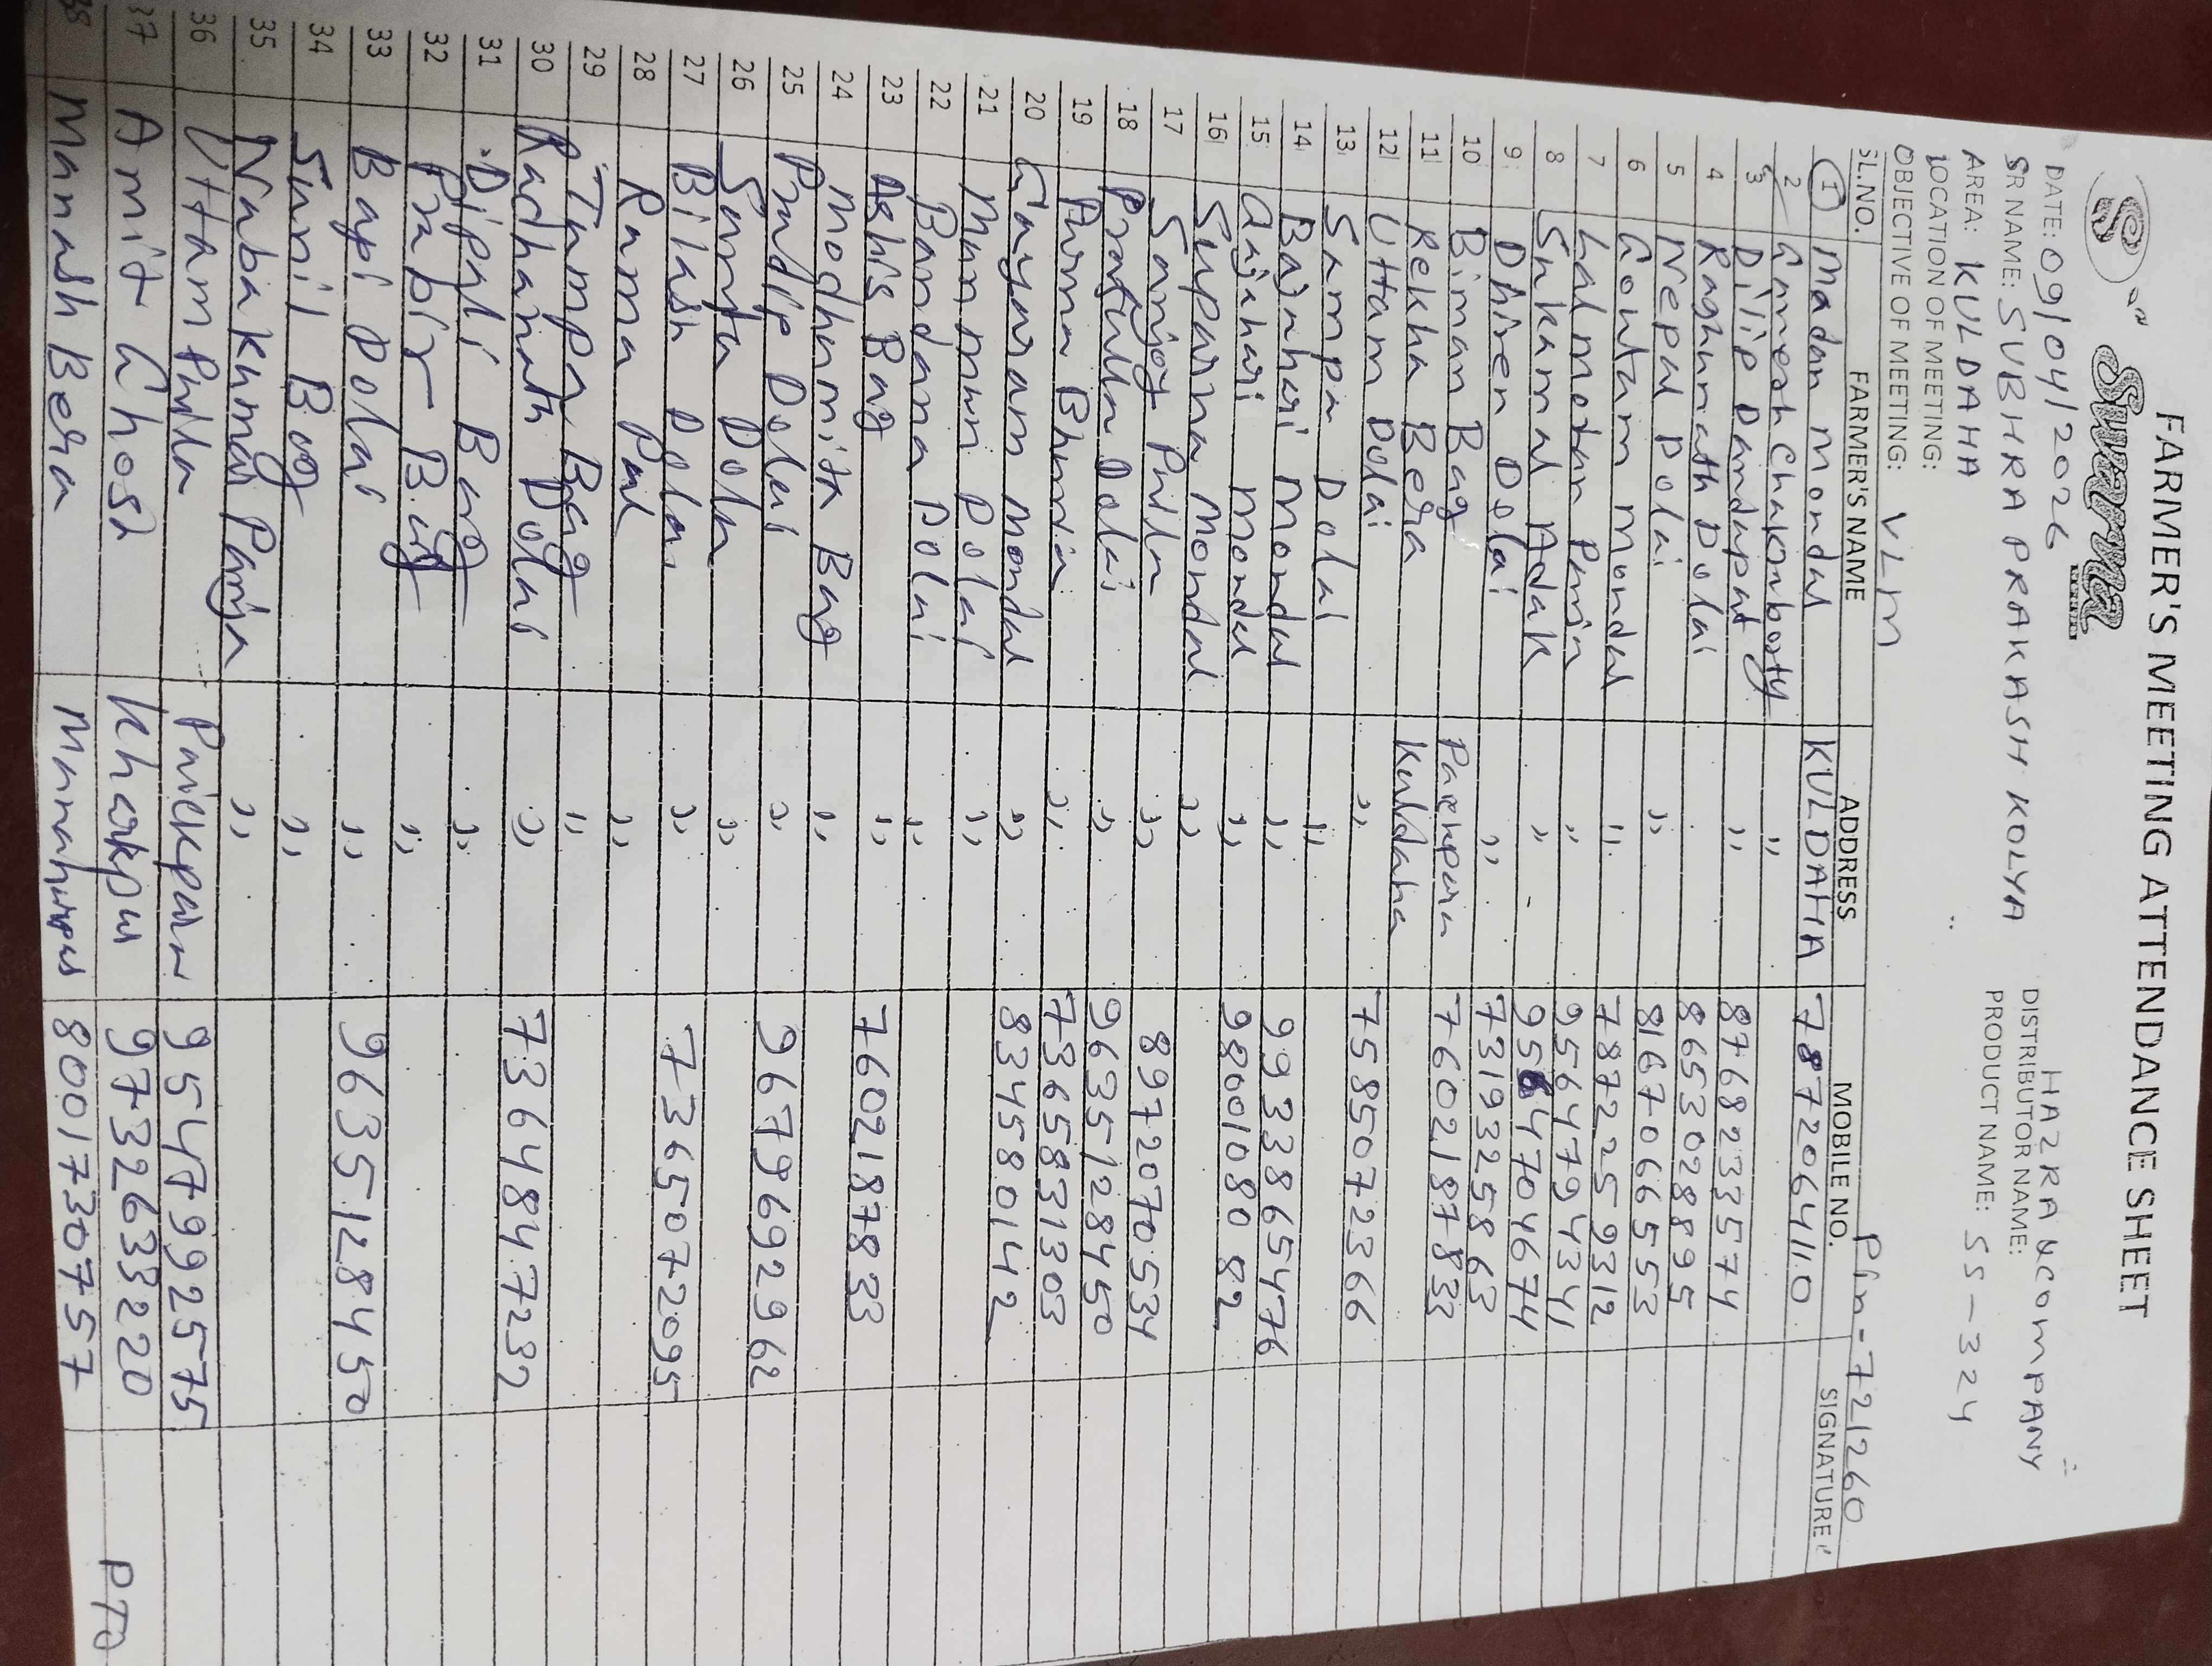 FARMER'S MEETING ATTENDANCE SHEET
Suvarna
DATE: 09/04/2026 DISTRIBUTOR NAME: HAZRA & COMPANY
SR NAME: SUBHRA PRAKASH KOLYA PRODUCT NAME: SS-324
AREA: KULDAHA
LOCATION OF MEETING:
OBJECTIVE OF MEETING: VLM Pin-721260
SL.NO. FARMER'S NAME ADDRESS MOBILE NO. SIGNATURE
1 Madan Mondal KULDAHA 7872064110
2 Gamesh Chakraborty ,,
3 Dilip Dandapat ,, 8768233574
4 Raghunath Dolai 8653028895
5 Nepal Dolai ,, 8167066553
6 Goutam Mondal ,, 7872259312
7 Lalmohan Parria ,, 9564794341
8 Sukamal Adak ,, 9564704674
9 Dhiren Dolai ,, 7319325863
10 Biman Bag Paikpara 7602187833
11 Rekha Bera Kuldaha
12 Uttam Dolai ,, 7585072366
13 Sampa Dolai ,,
14 Bajnhari Mondal ,, 9933865476
15 Gajnhari Mondal ,, 9800108082
16 Suparna Mondal ,,
17 Sanjoy Pulla ,, 8972070534
18 Prafulla Dolai ,, 9635128450
19 Purna Bhunia ,, 7365831303
20 Gayaram Mondal ,, 834580142
21 Munmun Dolai ,,
22 Bandana Dolai ,,
23 Ashis Bag ,, 7602187833
24 Modhumita Bag ,,
25 Pradip Dolai ,, 9679692962
26 Santa Dolai ,,
27 Bilash Dolai ,, 7365072095
28 Rama Pal ,,
29 Tumpa Bag ,,
30 Radhanath Dolai ,, 7364847232
31 Dipali Bag ,,
32 Prabir Bag ,,
33 Bapi Dolai ,, 9635128450
34 Sunil Bag ,,
35 Nabakumar Panja ,,
36 Uttam Pulla Paikpara 9547992575
37 Amit Ghosh Kharkpur 9732633220
38 Manash Bera 8001730757
PTO